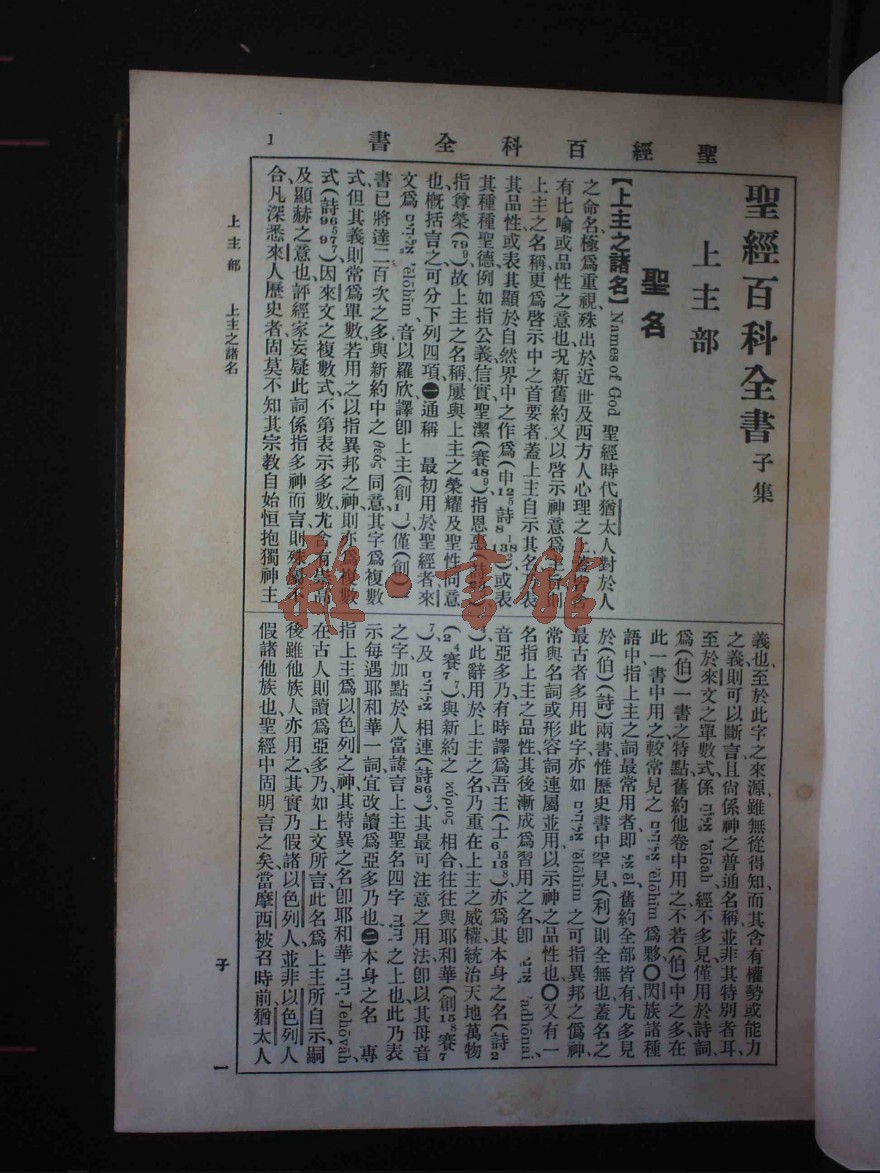 聖經百科全書
1
聖經百科全書 子集
上主部
聖名
【上主之諸名】Names of God 聖經時代猶太人對於人
之命名、極爲重視、殊出於近世及西方人心理之上、蓋皆含
有比喻或品性之意也、况新舊約又以啓示神意爲主、所則
上主之名稱、更爲啓示中之首要者、蓋上主自示其名、乃表
其品性、或表其顯於自然界中之作爲、(申12 5 詩8 1 138 2)或表
其種種聖德、例如指公義信實聖潔、(賽48 9)指恩惠、
指尊榮、(79 9)故上主之名稱、屢與上主之榮耀及聖性同意
也、概括言之、可分下列四項、㊀通稱 最初用於聖經者、來
文爲 אֱלֹהִים 'ĕlōhîm、音以羅欣、譯卽上主、(創1 1)僅(創)一
書、已將達二百次之多、與新約中之 θεός 同意、其字爲複數
式、但其義則常爲單數、若用之以指異邦之神、則亦爲複數
式、因來文之複數式、不第表示多數、尤含有崇高
及顯赫之意也、評經家妄疑此詞係指多神而言、則殊屬不
合、凡深悉來人歷史者、固莫不知其宗教自始恒抱獨神主
義也、至於此字之來源、雖無從得知、而其含有權勢或能力
之義、則可以斷言、且尙係神之普通名稱、並非其特別者耳、
至於來文之單數式、係 אֱלוֹהַּ 'ĕlōah、經不多見、僅用於詩詞、
爲(伯)一書之特點、舊約他卷中用之、不若(伯)中之多、在
此一書中用之、較常見之 אֱלֹהִים 'ĕlōhîm 爲夥、〇閃族諸種
語中、指上主之詞、最常用者、卽 אֵל 'ēl、舊約全部皆有、尤多見
於(伯)(詩)兩書、惟歷史書中罕見、(利)則全無也、蓋名之
最古者、多用此字、亦如 אֱלֹהִים 'ĕlōhîm 之可指異邦之僞神、
常與名詞或形容詞連屬並用、以示神之品性也、〇又有一
名、指上主之品性、其後漸成爲習用之名、卽 אֲדֹנָי 'adhōnai、
音亞多乃、有時譯爲吾主、(士6 15 13 8)亦爲其本身之名、(詩2
)此辭用於上主之名、乃重在上主之威權、統治天地萬物、
(2 4 賽7 7)與新約之 κύριος 相合、往往與耶和華(創15 8 賽7
7)及 אֱלֹהִים 相連、(詩86 2)其最可注意之用法、卽以其母音
之字加點、於人當諱言上主聖名四字 יהוה 之上也、此乃表
示每遇耶和華一詞、宜改讀爲亞多乃也、㊁本身之名 專
指上主爲以色列之神、其特異之名、卽耶和華 יהוה Jehōvāh、
在古人則讀爲亞多乃、如上文所言、此名爲上主所自示、嗣
後雖他族人亦用之、其實乃假諸以色列人、並非以色列人
假諸他族也、聖經中固明言之矣、當摩西被召時前、猶太人
上主部 上主之諸名
子
一
雜·書館